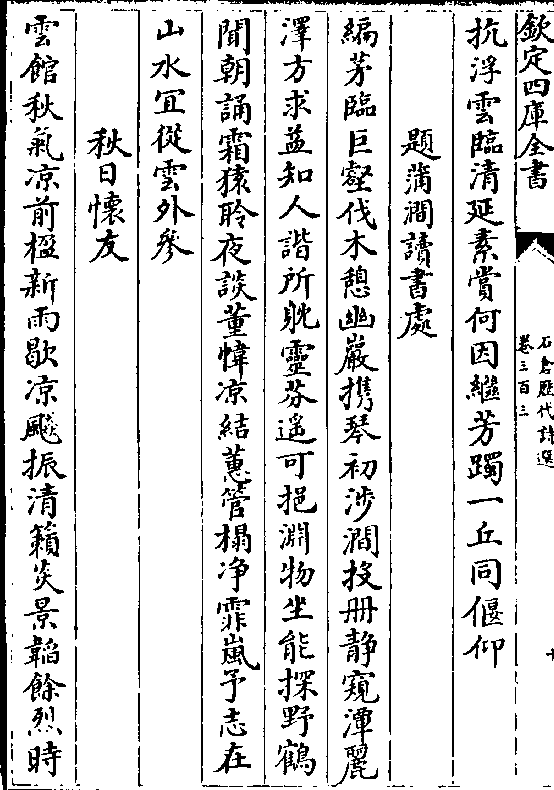 欽定四庫全書
石倉歷代詩選
卷三百三
十
抗浮雲臨清延素賞何因繼芳躅一丘同偃仰
題蒲澗讀書處
編茅臨巨壑伐木憩幽巖携琴初涉澗投册静窺潭麗
澤方求益知人諧所躭靈芬遥可挹淵物坐能探野鶴
聞朝誦霜猿聆夜談董幃凉結蕙管榻净霏嵐予志在
山水宜從雲外參
秋日懷友
雲館秋氣凉前楹新雨歇凉飈振清籟炎景韜餘烈時